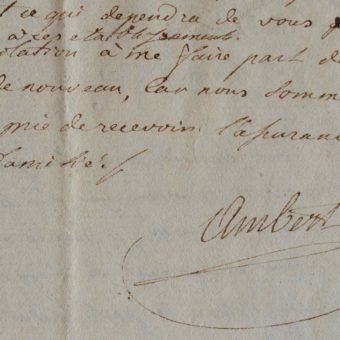 ce qui dependra de vous
a ces etablissements.
olation à me faire part de
de nouveau, Car nous somm
mie de recevoir l'assuranc
d'amitié.
Ambert